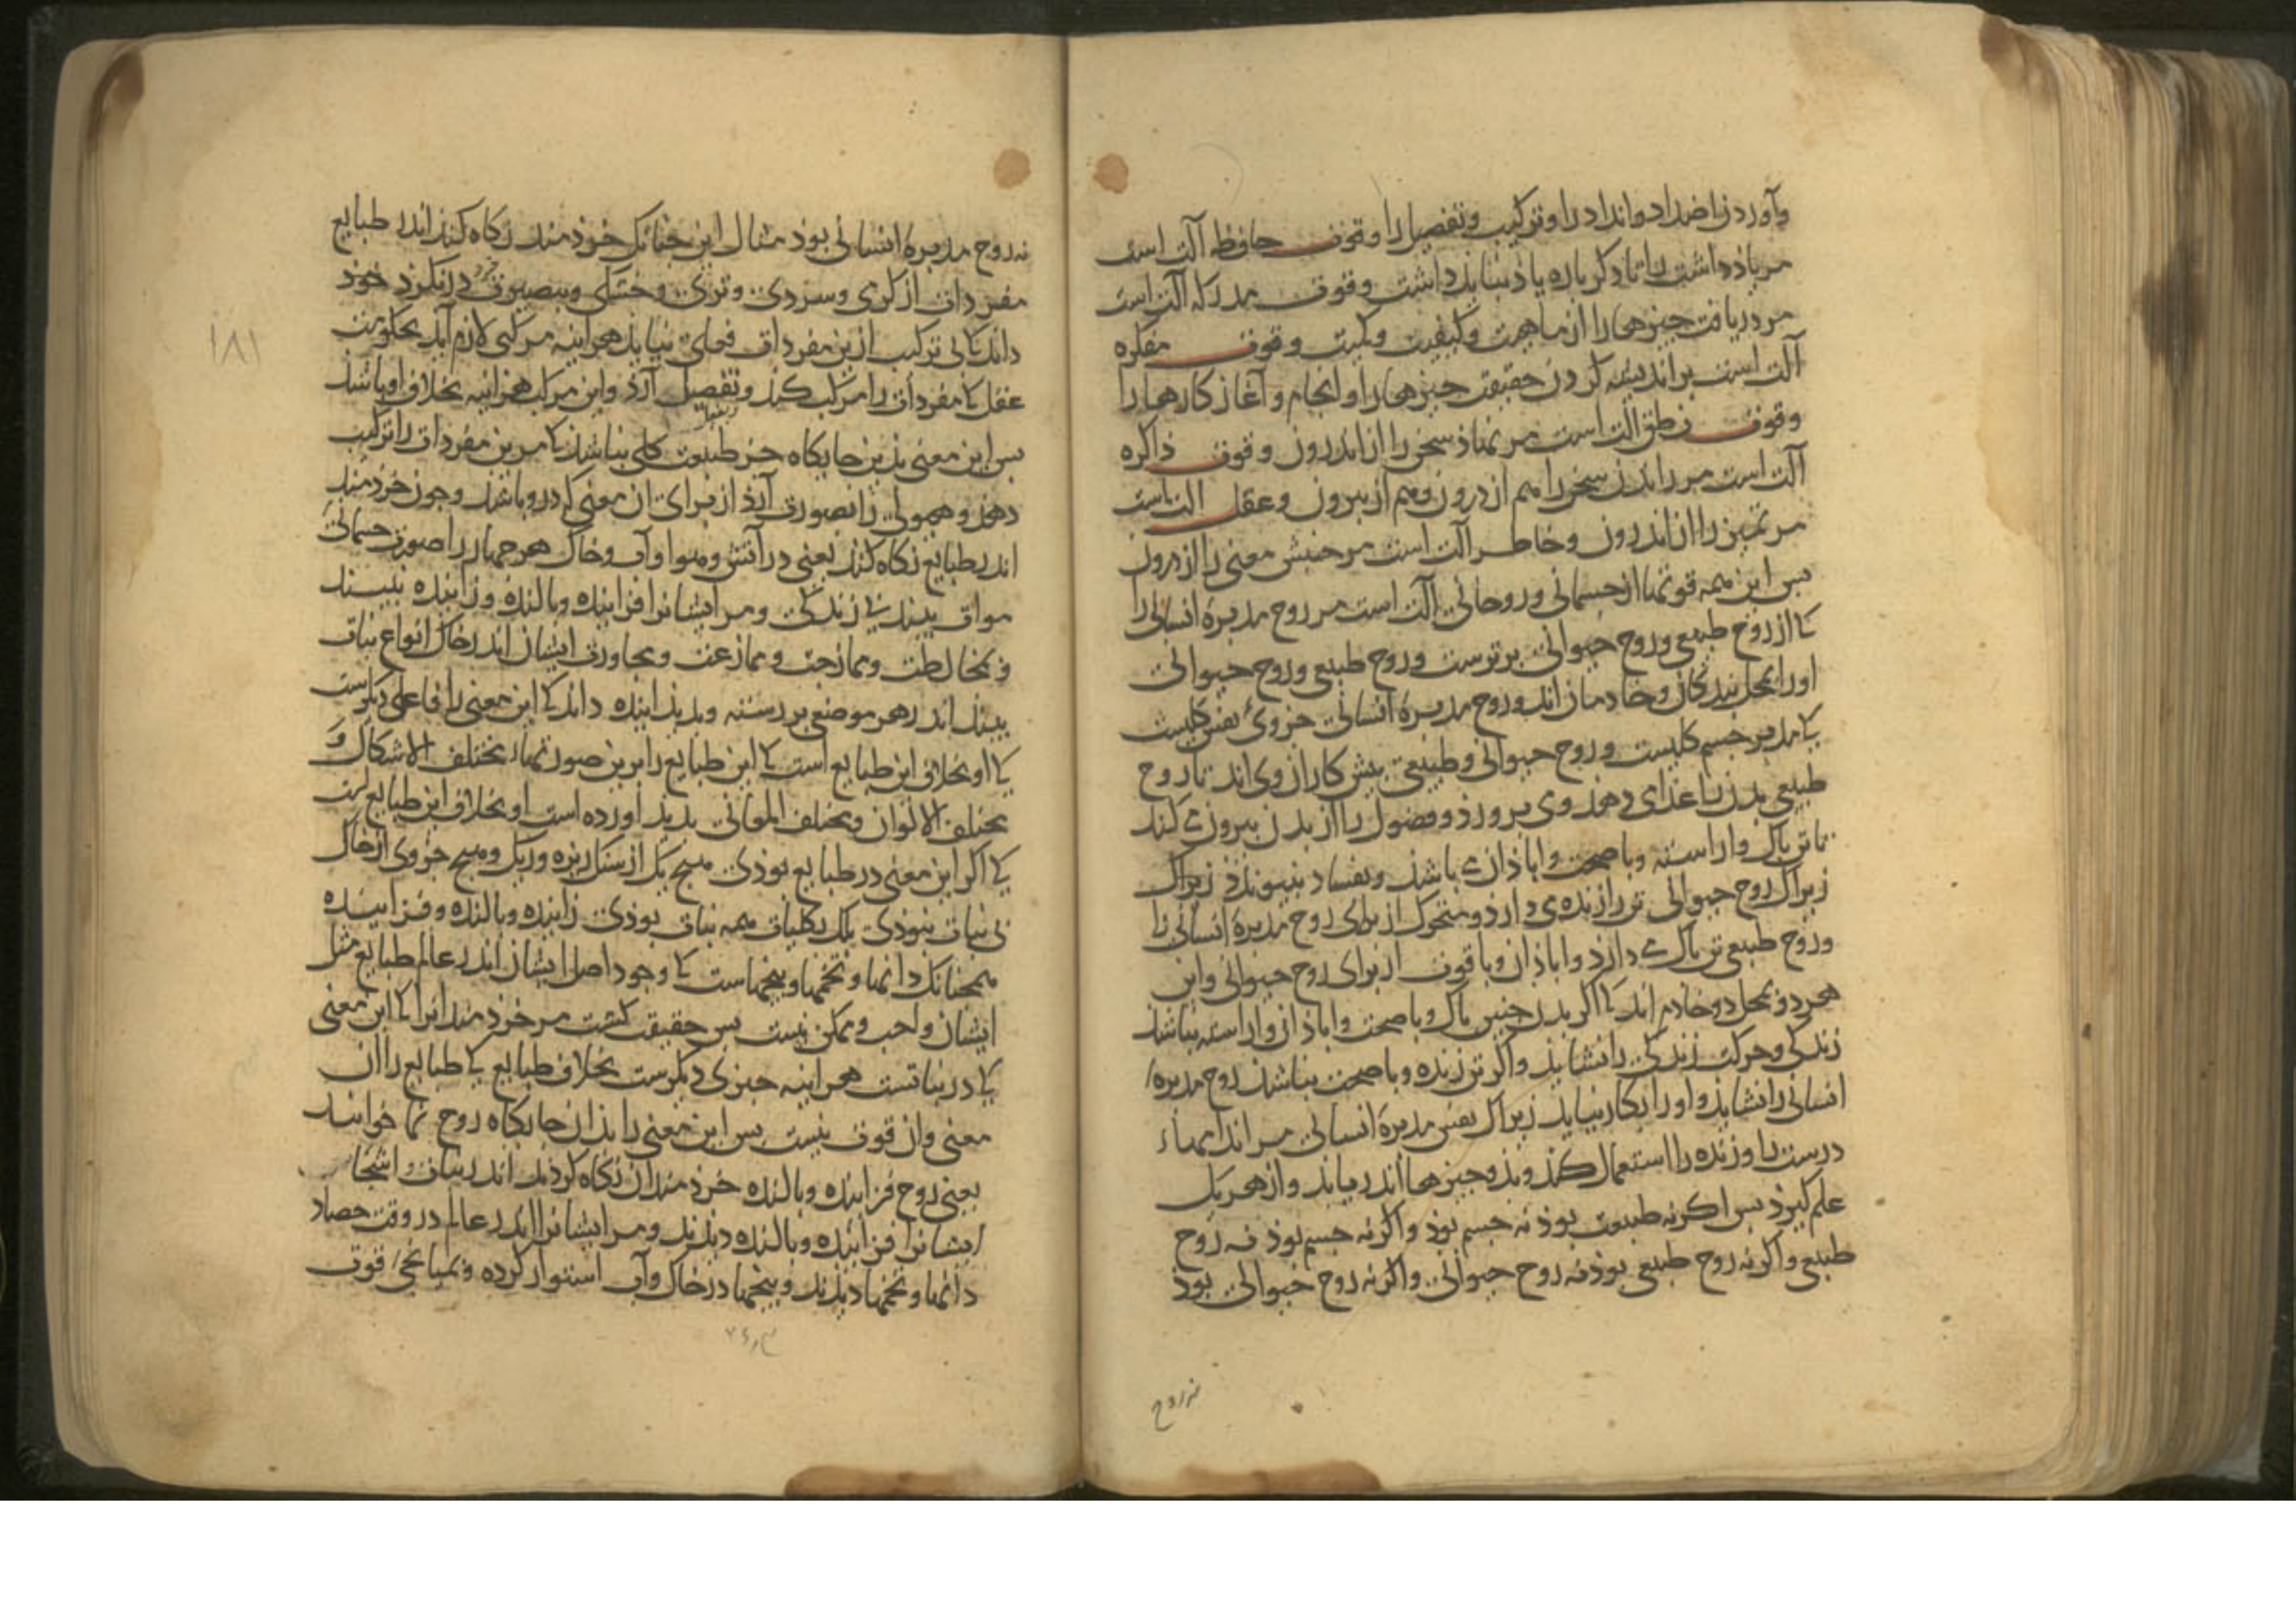 وآوردن اضداد وانداد را وترکیب وتفصیل را وقوت حافظه آلت است
مر یاذداشت را تا دکرباره یاذ بباید داشت وقوت مدرکه آلت است
مر دریافت چیزها را از ماهیت وکیفیت وکمیت وقوت مفکره
آلت است بر اندیشه کردن حقیقت چیزها را وانجام وآغاز کارها را
وقوت نطق الت است مر نماذ سخن را از اندرون وقوت ذاکره
آلت است مر راندن سخن را هم از درون وهم از بیرون وعقل الت است
مر تمییز را از اندرون وخاطر آلت است مر جنبش معنی را از درون
بس این همه قوتها از جسمانی وروحانی آلت است مر روح مدبرهٔ انسانی را
کا از روح طبیعی وروح حیوانی برترست وروح طبیعی وروح حیوانی
اورا بمحل بندکان وخادمان اند وروح مدبرهٔ انسانی جزوی نفس کلیست
کا مدبر جسم کلیست وروح حیوانی وطبیعی بیش کار از وی اند تا روح
طبیعی بدن را غذای دهد وی برورد وفضول را از بدن بیرون می کند
تا تن باک واراسته وبا صحت واباذان می باشد وبفساد نبیوندد زیراک
زیراک روح حیوانی تن را زنده می دارد ومتحرک از برای روح مدبرهٔ انسانی را
وروح طبیعی تن باک می دارد واباذان وبا قوت از برای روح حیوانی واین
هر دو بمحل دو خادم اند کا اکر بدن چنین باک وبا صحت واباذان واراسته نباشد
زندکی وحرکت زندکی را نشاید واکر تن زنده وبا صحت نباشد روح مدبره
انسانی را نشاید واو را بکار نیاید زیراک نفس مدبرهٔ انسانی مر اندامهاء
درست را وزنده را استعمال کند وبذو چیزها اندر یابد واز هر یک
علم کیرد بس اکر نه طبیعت بوذ نه جسم بوذ واکر نه جسم بوذ نه روح
طبیعی واکر نه روح طبیعی بوذ نه روح حیوانی واکر نه روح حیوانی بوذ
نه روح
نه روح مدبرهٔ انسانی بوذ مثال این چنانک خردمند نکاه کند اندر طبایع
مفردات از کرمی وسردی وتری وخشکی وببصیرت خرد درنکرد خود
داند کا بی ترکیب ازین مفردات فعلی نیاید هراینه مرکبی لازم آید بحکومت
عقل کا مفردات را مرکب کند وتفصیل آرد واین مرکب هراینه بخلاف او باشد
بس این معنی بدین جایکاه جز طبیعت کلی نباشد کا مر این مفردات را ترکیب
دهد وهیولی را بصورت آرد از برای ان معنی کا درو باشد وچون خردمند
اندر طبایع نکاه کند یعنی در آتش وهوا وآب وخاک هر چهار را صورت جسمانی
موات بیند بی زندکی ومر ایشانرا فزاینده وبالنده وزاینده نبیند
وبمخالطت وممازجت وممازعت ومجاورت ایشان اندر خاک انواع نبات
بیند اندر هر موضع بر رسته وبدید اینده داند کا این معنی را فاعلی دیکرست
کا او بخلاف این طبایع است کا این طبایع را برین صورتهاء مختلف الاشکال و
مختلف الالوان ومختلف المعانی بدید آورده است او بخلاف این طبایع است
کا اکر این معنی در طبایع بوذی هیچ یک از سنک ریزه وریک وهیچ جزوی از خاک
بی نبات نبوذی بلک بکلیات همه نبات بوذی زاینده وبالنده وفزاینده
همچنانک دانها وتخمها وبیخهاست کا وجود اصل ایشان اندر عالم طبایع مثل
ایشان واجب وممکن نیست بس حقیقت کشت مر خردمندانرا کا این معنی
کا در نباتست هراینه چیزی دیکرست بخلاف طبایع کا طبایع را ان
معنی وان قوت نیست بس این معنی را بذان جایکاه روح نما خوانند
یعنی روح فزاینده وبالنده خردمندان نکاه کردند اندر نبات واشجار
ایشانرا فزاینده وبالنده دیدند ومر ایشانرا اندر عالم در وقت حصاد
دانها وتخمها دیدند وبیخها در خاک وآب استوار کرده وبمیانجی قوت
۱۸۱